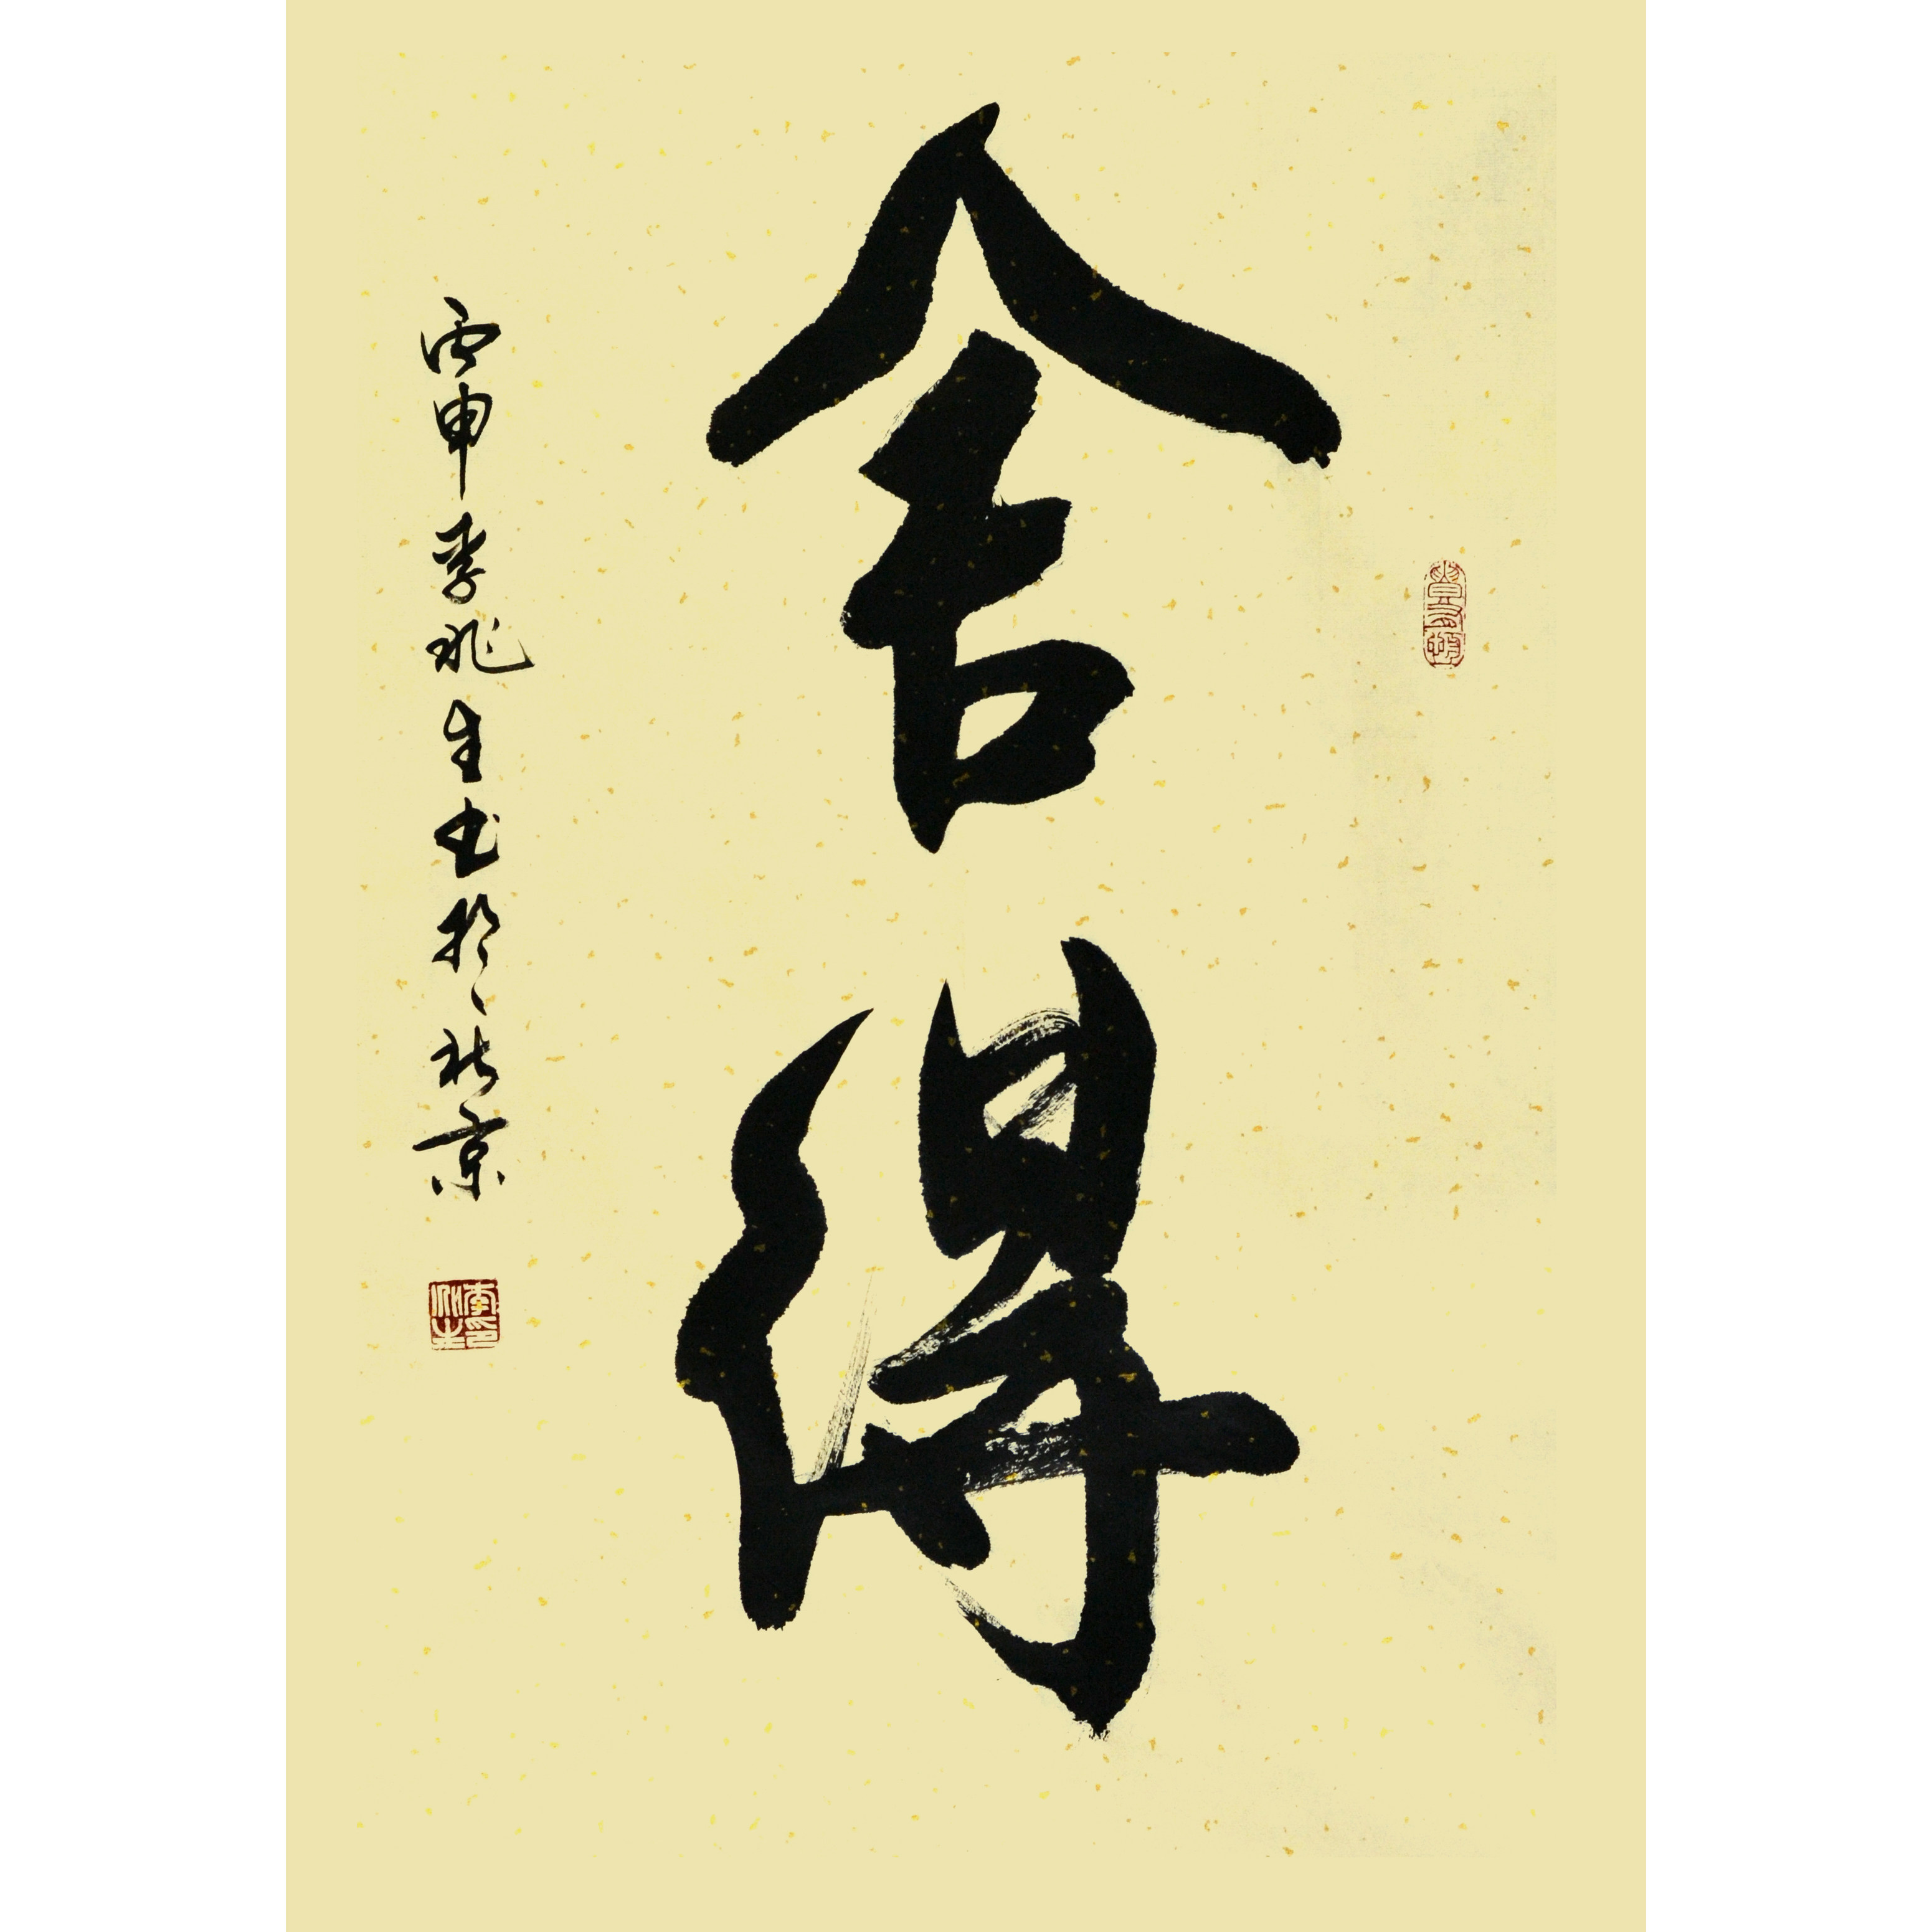 舍得
丙申李兆生书於北京
李兆生印